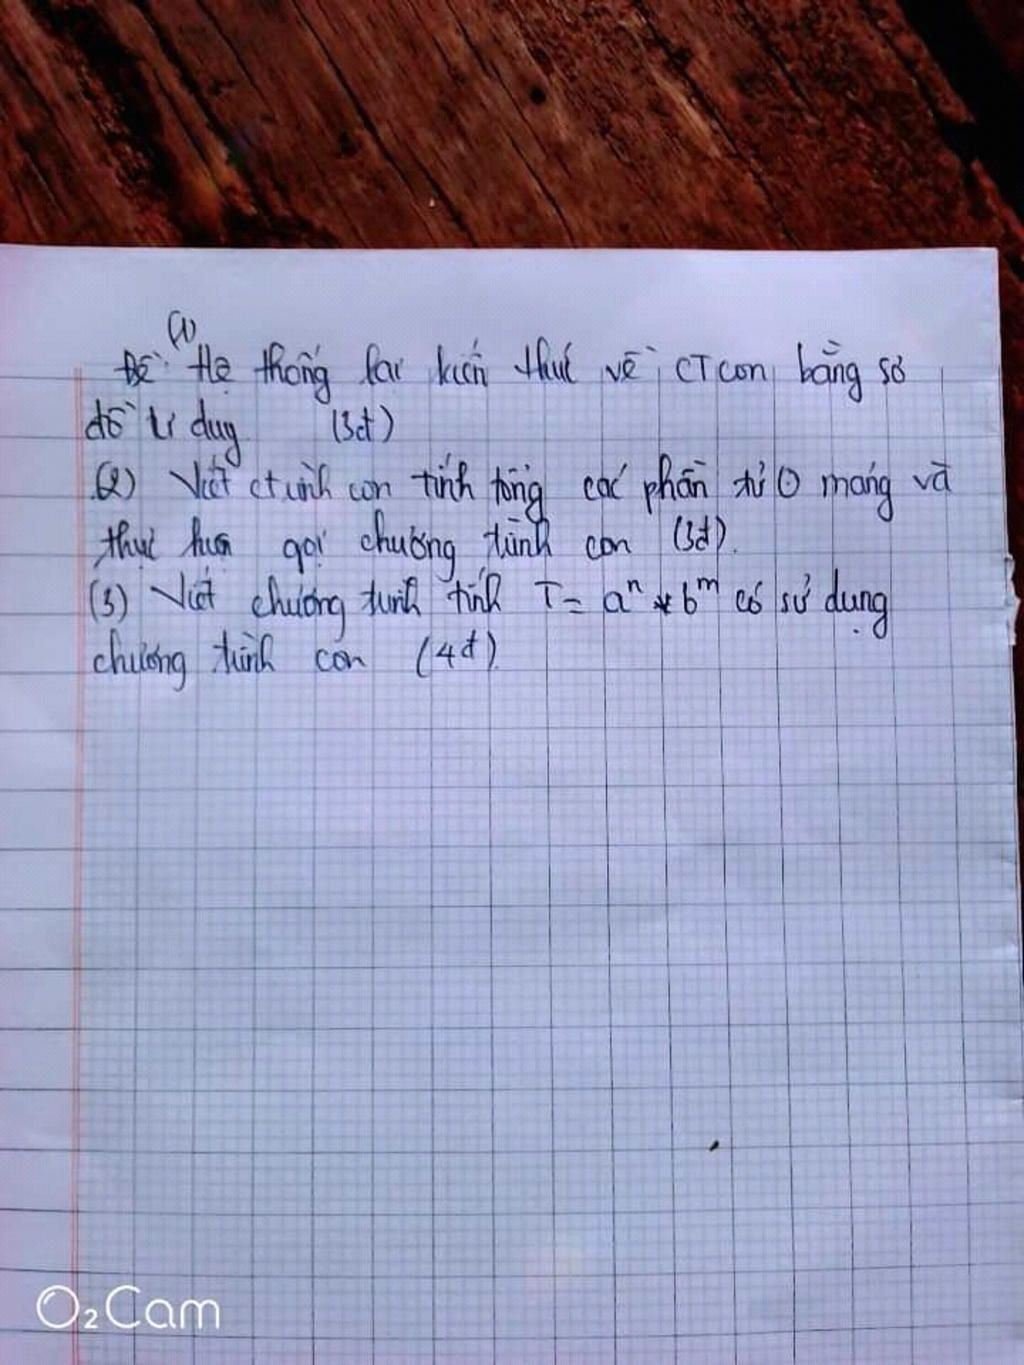 (1)
Đề: Hệ thống lại kiến thức về CT con bằng sơ
đồ tư duy (3đ)
(2) Viết ctrình con tính tổng các phần tử ① mảng và
thực hiện gọi chương trình con (3đ).
(3) Viết chương trình tính T = aⁿ * bᵐ có sử dụng
chương trình con (4đ).
O₂Cam